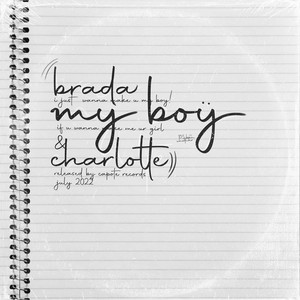 brada
i just wanna make u my boy!
my boÿ
if u wanna make me ur girl
&
charlotte
released by capote records
july 2022